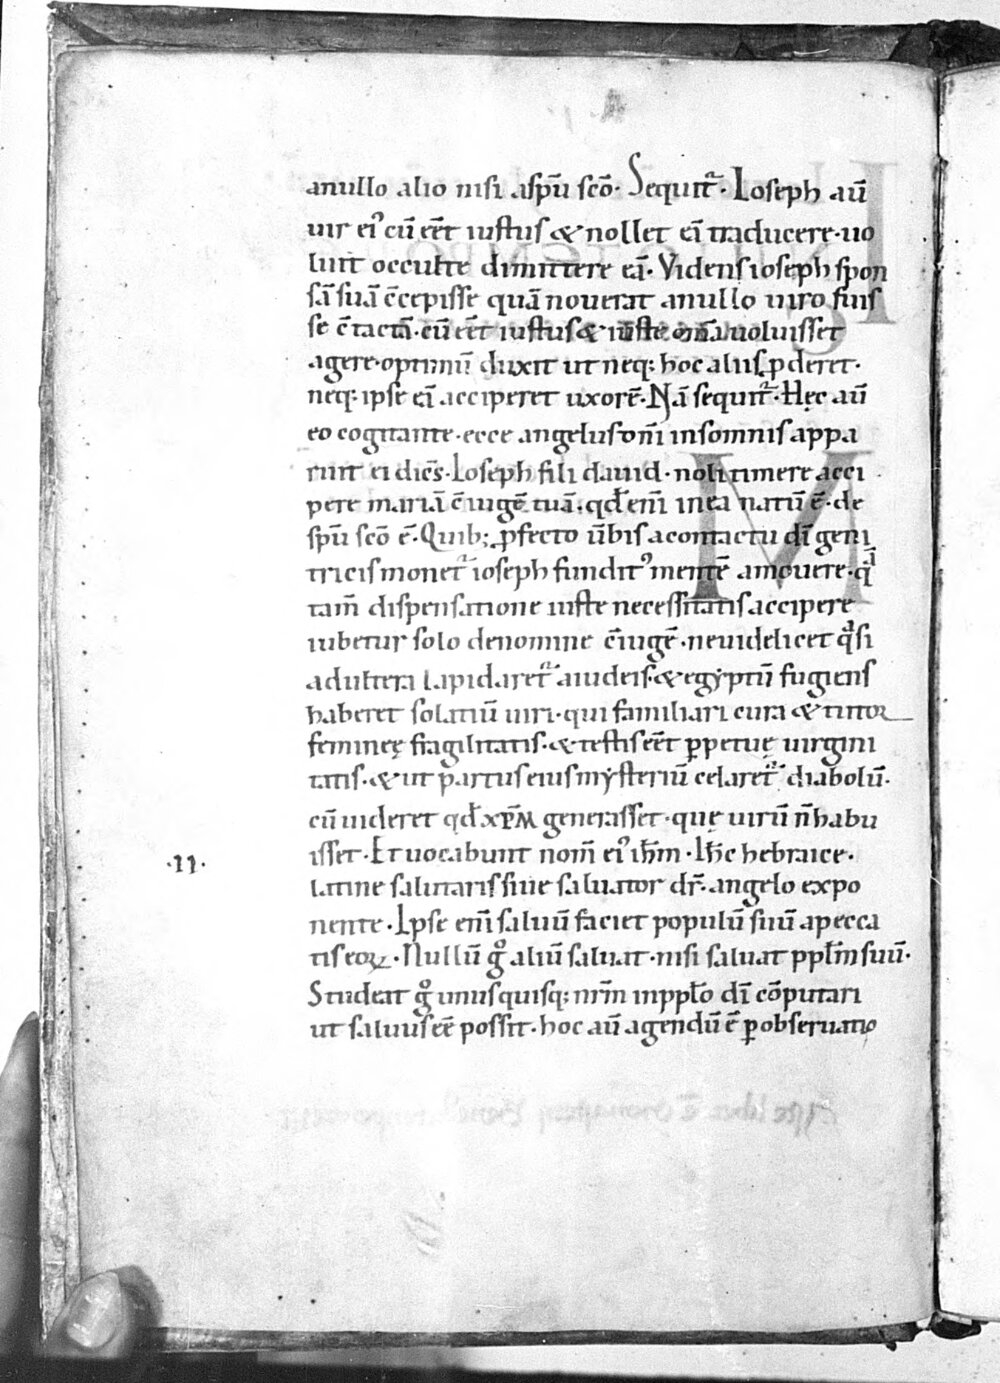 anullo alio nisi aspū scō. Sequit᷑. Ioseph aū
uir ei᾽ cū eēt iustus & nollet eā traducere. uo
luit occulte dimittere eā. Videns ioseph spon
sā suā c̄cepisse quā nouerat a nullo uiro fuis
se c̄tactā. cū eēt iustus & iuste om̄a uoluisset
agere. optimū duxit ut neq; hoc aliis ꝓderet.
neq; ipse eā acciperet uxorē. Nā sequit᷑. Hęc aū
eo cogitante. ecce angelus dn̄i in somnis appa
ruit ei dicēs. Ioseph fili dauid. noli timere acci
pere mariā c̄iugē tuā. qđ eni᷒ in ea natū ē. de
spū scō ē. Quib; ꝓfecto ūbis a contactu dī geni
tricis monet᷑ ioseph fundit᾽ mentē amouere. qͥ
tam̄ dispensatione iuste necessitatis accipere
iubetur solo de nomine c̄iugē. ne uidelicet qͣsi
adultera lapidaret᷑ a iudeis. & egyptū fugiens
haberet solatiū uiri. qui familiari cura & tutor
femineę fragilitatis. & testis eēt ꝑpetuę uirgini
tatis. & ut partus eius mysteriū celaret᷑ diabolū.
cū uideret qđ xp̄m generasset. quę uirū n̄ habu
isset. Et uocabunt nom̄ ei᾽ ihm̄. Ihc̄ hebraice.
·II·
latine salutaris siue saluator dr̄. angelo expo
nente. Ipse eni᷒ saluū faciet populū suū a pecca
tis eoꝝ. Nullū gͦ aliū saluat. nisi saluat pplm̄ suū.
Studeat gͦ unusquisq; nr̄m in ppl̄o dī cōputari
ut saluus eē possit. hoc aū agendū ē ꝑ obseruatio